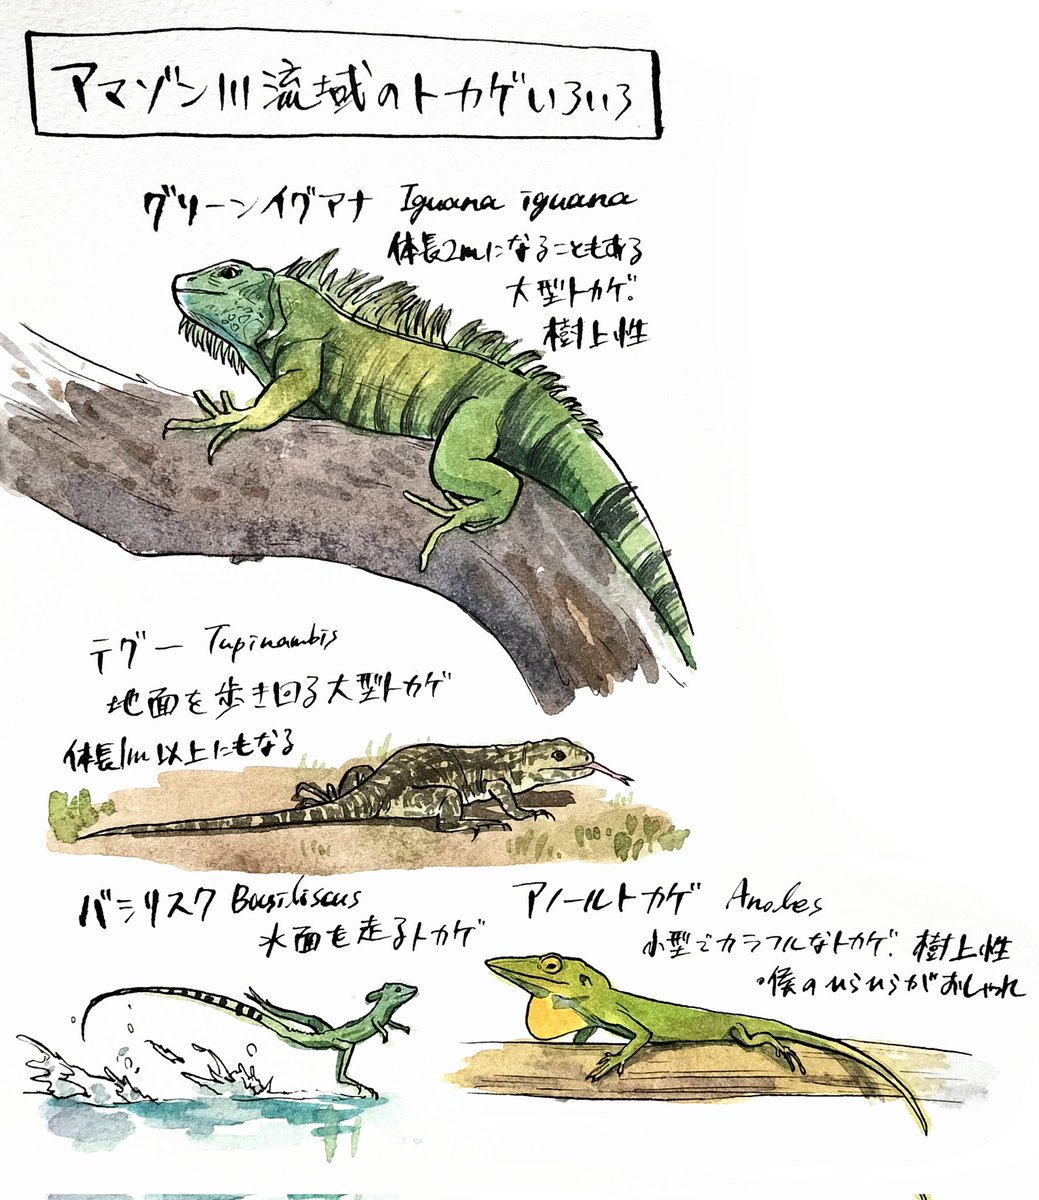 アマゾン川流域のトカゲいろいろ
グリーンイグアナ Iguana iguana
体長2mになることもある
大型トカゲ.
樹上性
テグー Tupinambis
地面を歩き回る大型トカゲ
体長1m以上にもなる
バシリスク Basiliscus
水面を走るトカゲ
アノールトカゲ Anoles
小型でカラフルなトカゲ. 樹上性
喉のひらひらがおしゃれ